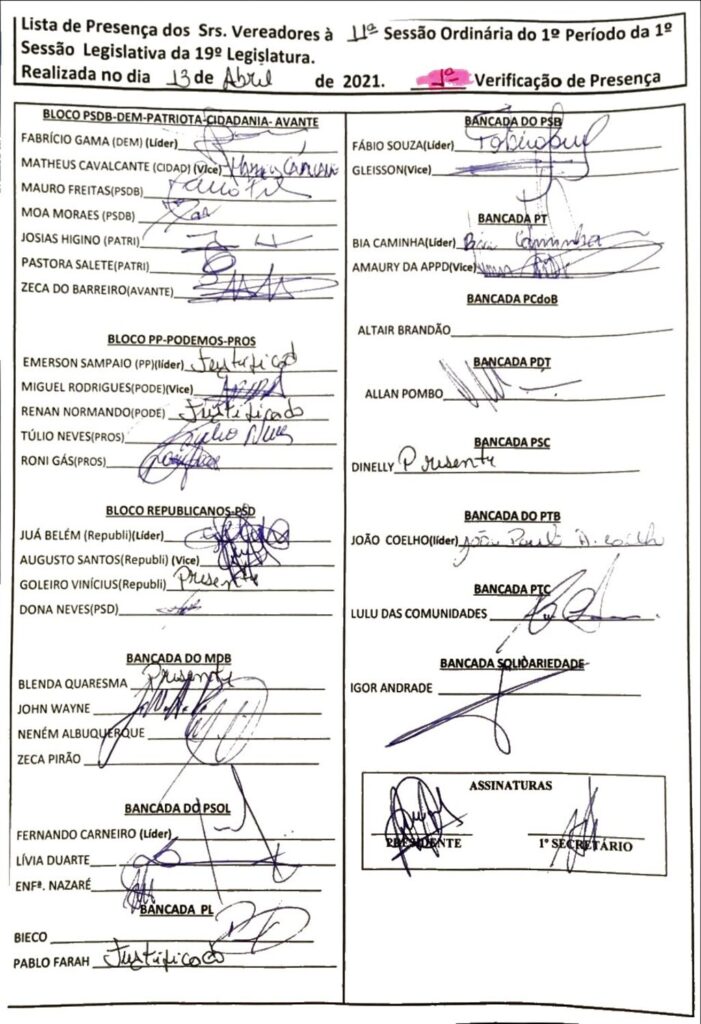 Lista de Presença dos Srs. Vereadores à 11ª Sessão Ordinária do 1º Período da 1º
Sessão Legislativa da 19º Legislatura.
Realizada no dia 13 de Abril de 2021. 1ª Verificação de Presença
BLOCO PSDB-DEM-PATRIOTA-CIDADANIA- AVANTE
FABRÍCIO GAMA (DEM) (Líder)
MATHEUS CAVALCANTE (CIDAD) (Vice)
MAURO FREITAS(PSDB)
MOA MORAES (PSDB)
JOSIAS HIGINO (PATRI)
PASTORA SALETE(PATRI)
ZECA DO BARREIRO(AVANTE)
BLOCO PP-PODEMOS-PROS
EMERSON SAMPAIO (PP)(líder) Justificado
MIGUEL RODRIGUES(PODE)(Vice)
RENAN NORMANDO(PODE) Justificado
TÚLIO NEVES(PROS) Túlio Neves
RONI GÁS(PROS)
BLOCO REPUBLICANOS-PSD
JUÁ BELÉM (Republi)(Líder)
AUGUSTO SANTOS(Republi) (Vice)
GOLEIRO VINÍCIUS(Republi) Presente
DONA NEVES(PSD)
BANCADA DO MDB
BLENDA QUARESMA Presente
JOHN WAYNE
NENÉM ALBUQUERQUE
ZECA PIRÃO
BANCADA DO PSOL
FERNANDO CARNEIRO (Líder)
LÍVIA DUARTE
ENFª. NAZARÉ
BANCADA PL
BIECO
PABLO FARAH Justificado
BANCADA DO PSB
FÁBIO SOUZA(Líder)
GLEISSON(Vice)
BANCADA PT
BIA CAMINHA(Líder) Bia Caminha
AMAURY DA APPD(Vice)
BANCADA PCdoB
ALTAIR BRANDÃO
BANCADA PDT
ALLAN POMBO
BANCADA PSC
DINELLY Presente
BANCADA DO PTB
JOÃO COELHO(líder) João Paulo A. Coelho
BANCADA PTC
LULU DAS COMUNIDADES
BANCADA SOLIDARIEDADE
IGOR ANDRADE
ASSINATURAS
PRESIDENTE 1º SECRETÁRIO